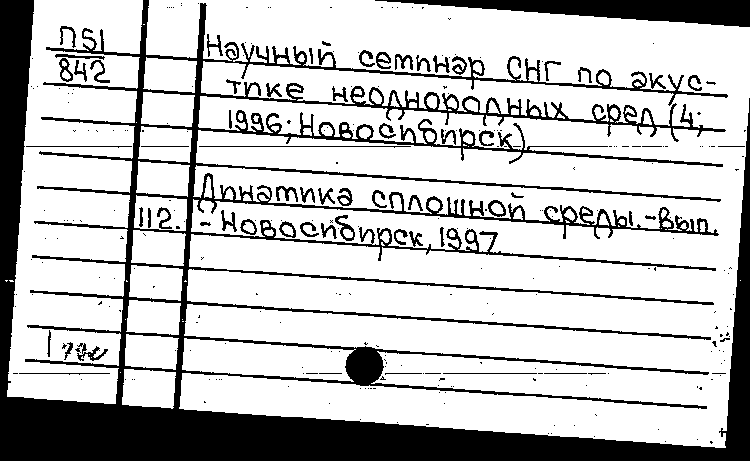 П51
842
Научный семинар СНГ по акус-
тике неоднородных сред (4;
1996; Новосибирск).
Динамика сплошной среды. - Вып.
112. - Новосибирск, 1997.